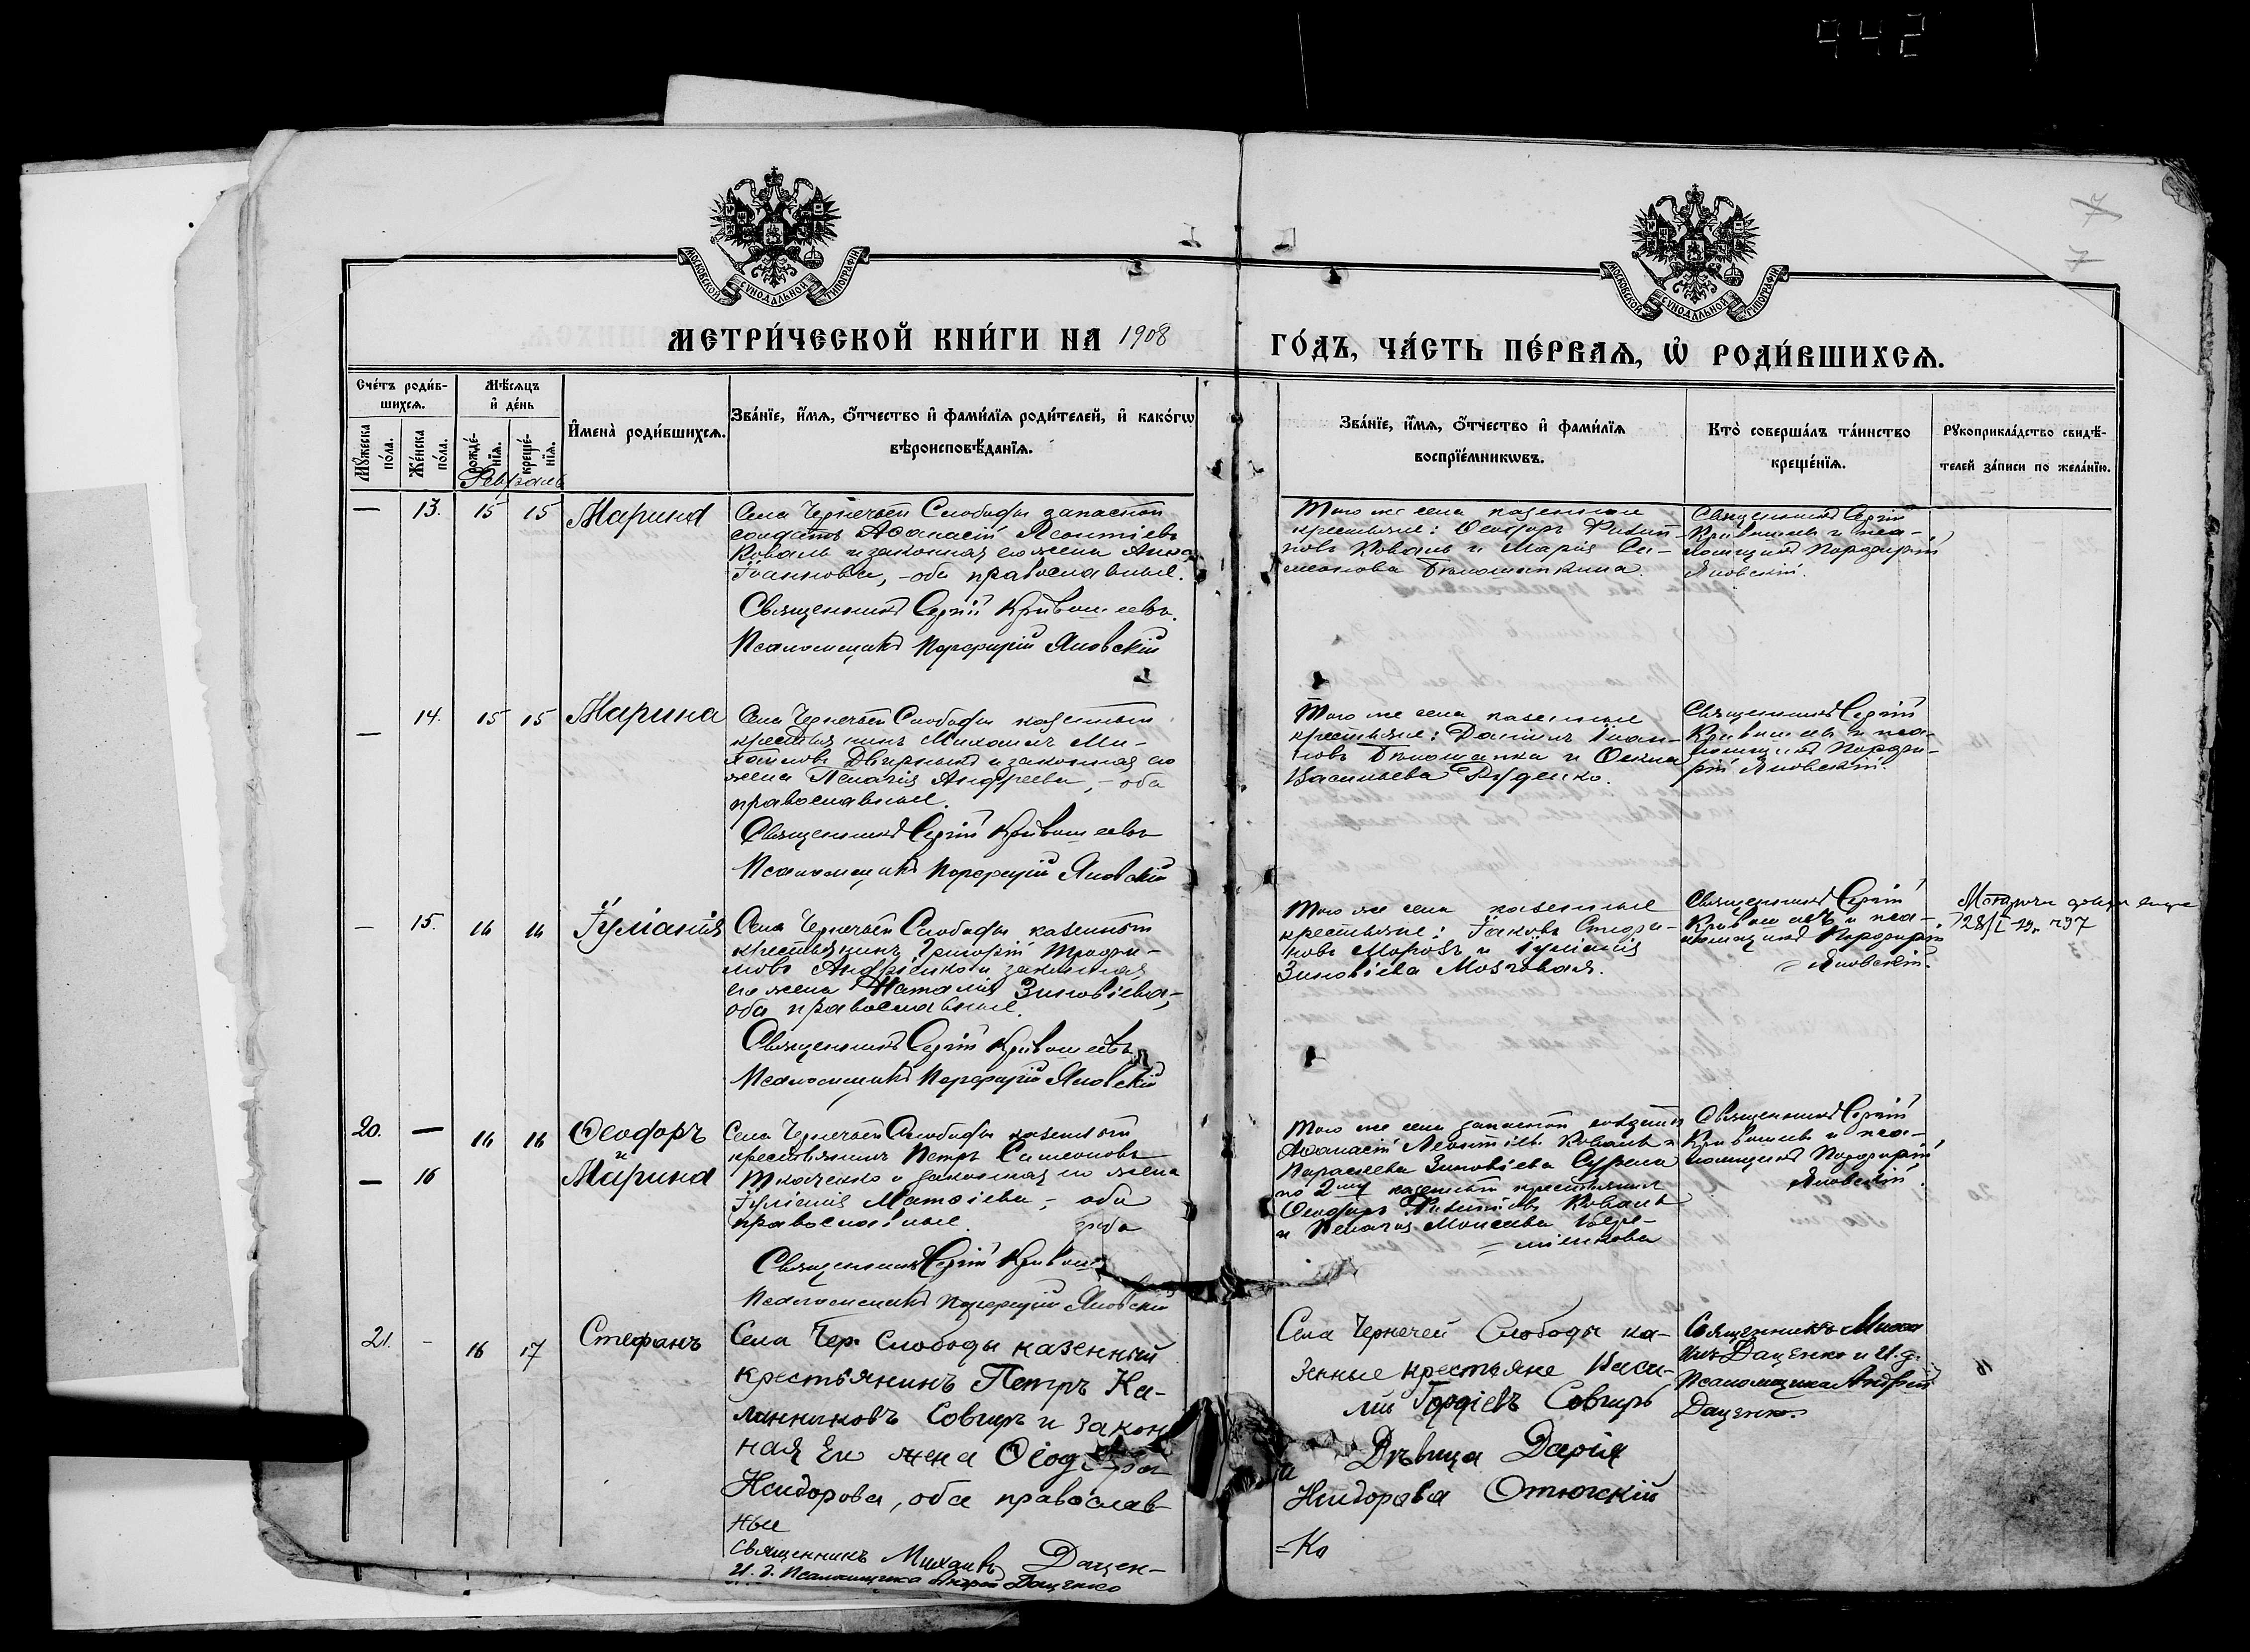 942
МОСКОВСКОЙ СѴНОДАЛЬНОЙ ТИПОГРАФІИ
МОСКОВСКОЙ СѴНОДАЛЬНОЙ ТИПОГРАФІИ
7
7
МЕТРИ́ЧЕСКОЙ КНИ́ГИ НА 1908
ГО́ДЪ, ЧА́СТЬ ПЕ́РВАѦ, Ѡ҆ РОДИ́ВШИХСѦ.
Сче́тъ роди́в-
шихсѧ.
Мѣ́сѧцъ
и҆ де́нь
Мꙋ́жеска по́ла.
Же́нска по́ла.
рожде́-нїѧ.
креще́-нїѧ.
И҆мена̀ роди́вшихсѧ.
Зва́нїе, и҆́мѧ, ѻ҆́тчество и҆ фами́лїѧ роди́телей, и҆ како́гѡ
вѣроисповѣ́данїѧ.
Зва́нїе, и҆́мѧ, ѻ҆́тчество и҆ фами́лїѧ
воспрїе́мникѡвъ.
Кто̀ соверша́лъ та́инство
креще́нїѧ.
Рꙋкоприкла́дство свидѣ́-
телей за́писи по жела́нїю.
Февраль
— 13. 15 15 Марина
Села Чернечьей Слободы запасной
солдатъ Аѳанасій Леонтіевъ
Коваль и законная его жена Анна
Іоаннова, – оба православные.
Священникъ Сергій Кривошеевъ.
Псаломщикъ Порфирій Яновскій
Того же села казенные
крестьяне: Ѳеодоръ
новъ Коваль и Марія Си-
меонова Бѣлошапкина.
Священникъ Сергій
Кривошеевъ и пса-
ломщикъ Порфирій
Яновскій.
— 14. 15 15 Марина
Села Чернечьей Слободы казенный
крестьянинъ Михаилъ Ми-
хаиловъ Двирныкъ и законная его
жена Пелагія Андреева, – оба
православные.
Священникъ Сергій Кривошеевъ
Псаломщикъ Порфирій Яновскій
Того же села казенные
крестьяне: Даніилъ Іоан-
новъ Бѣлошапка и
Васильева Руденко.
Священникъ Сергій
Кривошеевъ и пса-
ломщикъ Порфи-
рій Яновскій.
— 15. 16 16 Іуліанія
Села Чернечьей Слободы казенный
крестьянинъ Григорій Трофи-
мовъ Андріенко и законная
его жена Наталія Зиновіева, –
оба православные.
Священникъ Сергій Кривошеевъ
Псаломщикъ Порфирій Яновскій
Того же села казенные
крестьяне: Іаковъ
новъ Морозъ и Іуліанія
Зиновіева Мозговая.
Священникъ Сергій
Кривошеевъ и пса-
ломщикъ Порфирій
Яновскій.
28/I
20. — 16 16 Ѳеодоръ
и
— 16 Марина
Села Чернечьей Слободы казенный
крестьянинъ Петръ Симеоновъ
Ткаченко и законная его жена
Іуліанія Матѳіева, – оба
православные.
Священникъ Сергій Кривош
Псаломщикъ Порфирій Яновскій
Того же села запасной солдатъ
Аѳанасій Леонтіевъ Коваль и
Параскева Зиновіева
по 2му казенный крестьянинъ
Ѳеодоръ Коваль
и Пелагія Моисеева
Священникъ Сергій
Кривошеевъ и пса-
ломщикъ Порфирій
Яновскій.
21. – 16 17 Стефанъ
Села Чер. Слободы казенный
крестьянинъ Петръ Ка-
линниковъ Совиръ и закон
ная его жена Ѳеодора
Исидорова, оба православ-
ные
Священникъ Михаилъ Дацен-
И. д. Псаломщика Андрей Даценко
Села Чернечей Слободы ка-
зенные крестьяне Васи-
лій Гордіевъ Совиръ
и Дѣвица Дарія
Исидорова Отюгскій
=ко
Священникъ Миха
илъ Даценко и И. д.
Псаломщика Андрей
Даценко.